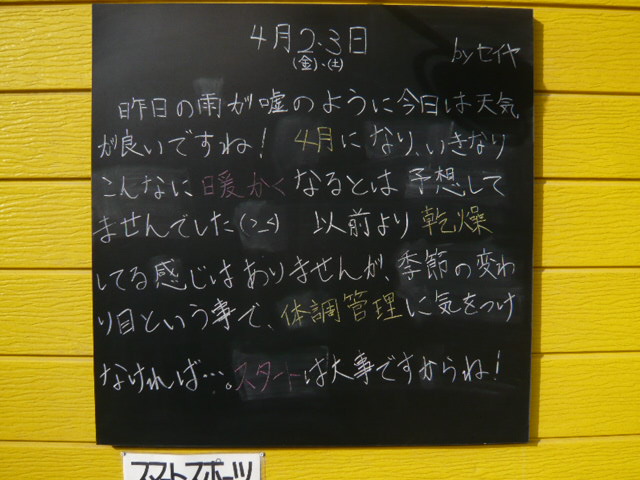 4月2.3日
(金)、(土)
by セイヤ
昨日の雨が嘘のように今日は天気
が良いですね! 4月になり、いきなり
こんなに暖かくなるとは予想して
ませんでした(>_<) 以前より乾燥
してる感じはありませんが、季節の変わ
り目という事で、体調管理に気をつけ
なければ…。スタートは大事ですからね!
スマートスポーツ